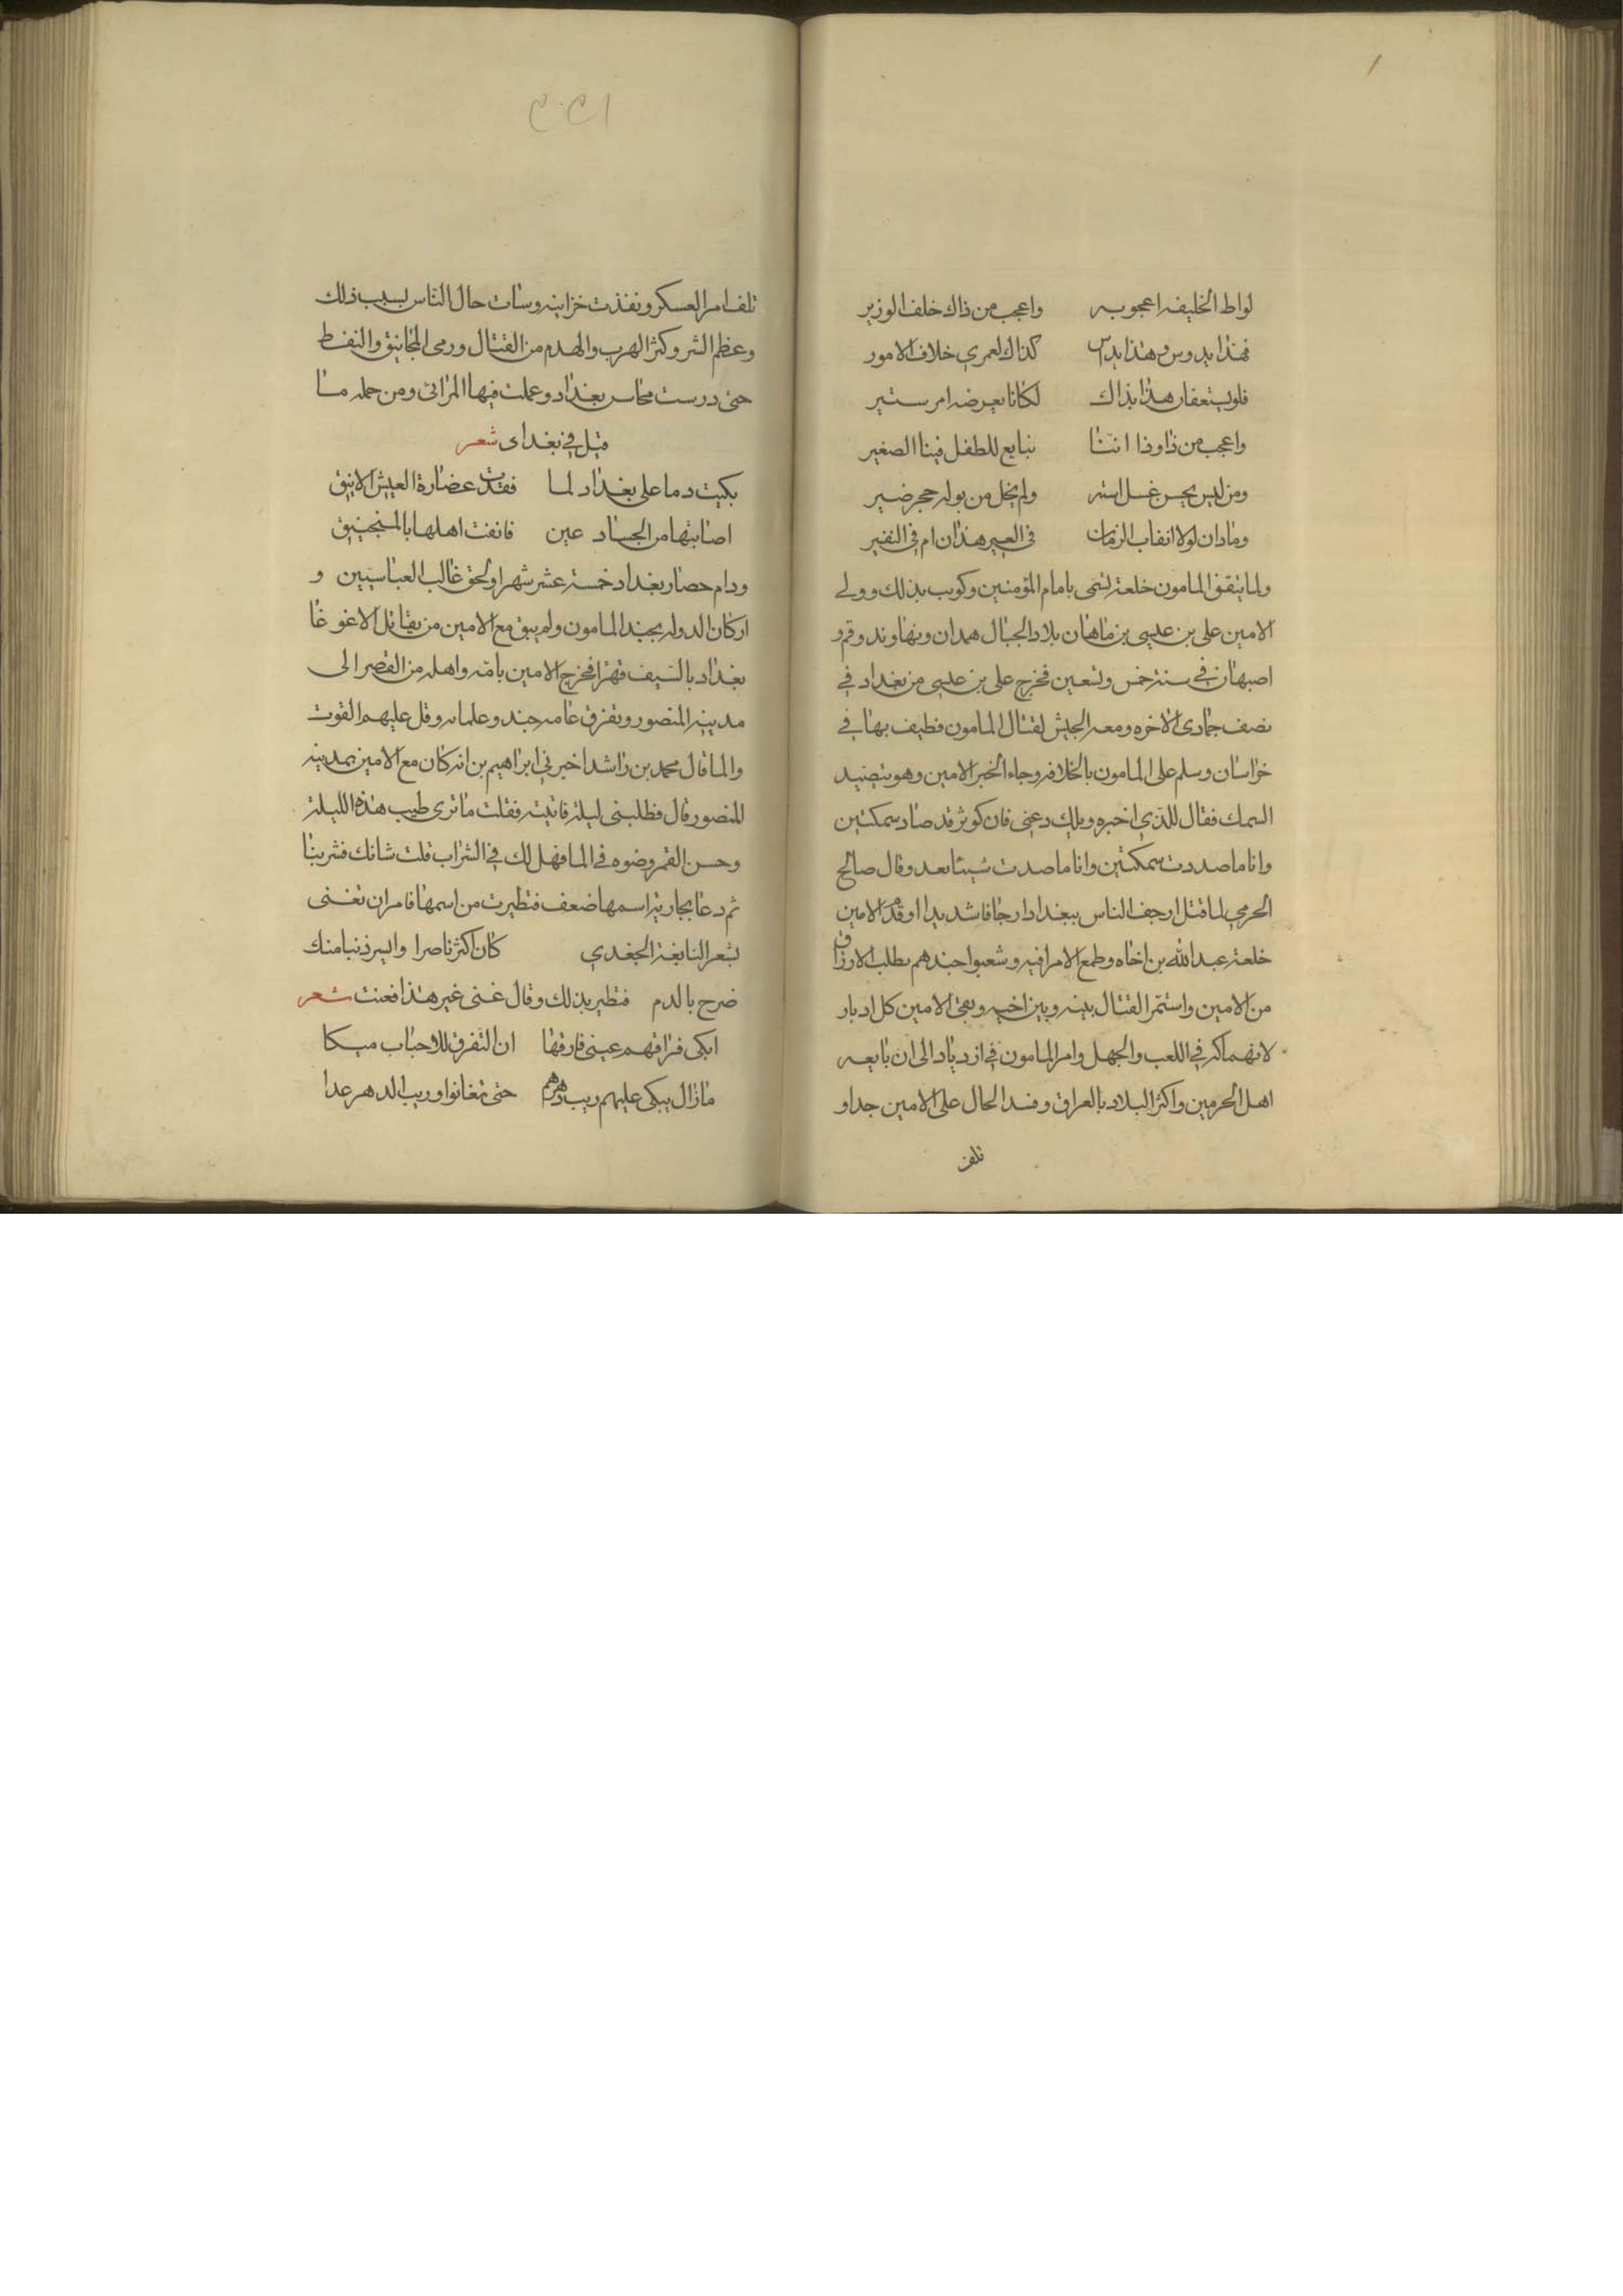 لواط الخليفه اعجوبه واعجب من ذاك خلف الوزير
فهذا يدوس وهذا يداس كذاك لعمري خلاف الامور
فلو يستعفان هذا بذاك لكانا بعرضه امر ستير
واعجب من ذا وذا اننا نبايع للطفل فينا الصغير
ومن ليس يحسن غسل استه ولم يخل من بوله حجر ضير
وما دان لولا انقاب الزمان في العير هذان ام في النفير
ولما يتقن المامون خلعه تسمى بامام المؤمنين وكوتب بذلك وولي
الامين علي بن عيسى بن ماهان بلاد الجبال همدان ونهاوند وقم و
اصبهان في سنة خمس وتسعين فخرج علي بن عيسى من بغداد في
نصف جمادى الاخره ومعه الجيش لقتال المامون فطيف بها في
خراسان وسلم على المامون بالخلافه وجاء الخبر الامين وهو يتصيد
السمك فقال للذي اخبره ويلك دعني فان كوثر قد صاد سمكتين
وانا ما صددت سمكتين وانا ما صدت شيئا بعد وقال صالح
الحرمي لما قتل ارجف الناس ببغداد ارجافا شديدا وقدم الامين
خلعة عبد الله بن اخاه وطمع الامرا فيه وشعبوا جندهم بطلب الارزاق
من الامين واستمر القتال بينه وبين اخيه وبقى الامين كل ادبار
لانهماكه في اللعب والجهل وامر المامون في ازدياد الى ان بايعه
اهل الحرمين واكثر البلاد بالعراق وفسد الحال على الامين جدا و
تلف
تلف امر العسكر ونفذت خزاينه وسات حال الناس بسبب ذلك
وعظم الشر وكثر الهرب والهدم من القتال ورمي المجانيق والنفط
حتى درست محاسن بغداد وعملت فيها المراثى ومن جمله ما
قيل في بغداى شعر
بكيت دما على بغداد لما فقدت غضارة العيش الانيق
اصابتها من الحساد عين فانفت اهلها بالمنجنيق
ودام حصار بغداد خمسة عشر شهرا ولحق غالب العباسيين و
اركان الدوله بجند المامون ولم يبق مع الامين من يقاتل الا غوغا
بغداد بالسيف قهرا فخرج الامين بامه واهله من القصر الى
مدينه المنصور وتفرق عامه جنده وغلمانه وقل عليهم القوت
والما قال محمد بن راشد اخبرني ابراهيم بن انه كان مع الامين بمدينه
المنصور قال فطلبنى ليلة فاتيته فقلت ما ترى طيب هذه الليلة
وحسن القمر وضوه في الما فهل لك في الشراب قلت شانك فشربنا
ثم دعا بجارية اسمها ضعف فتطيرت من اسمها فامر ان تغنى
بشعر النابغة الجعدي كان اكثر ناصرا وايسر ذنبا منك
ضرج بالدم فتطير بذلك وقال غنى غير هذا فغنت شعر
ابكى فراقهم عينى فارقها ان التفرق للاحباب مبكا
مازال يبكى عليهم ريب دهرهم حتى تفانوا وريب الدهر عدا